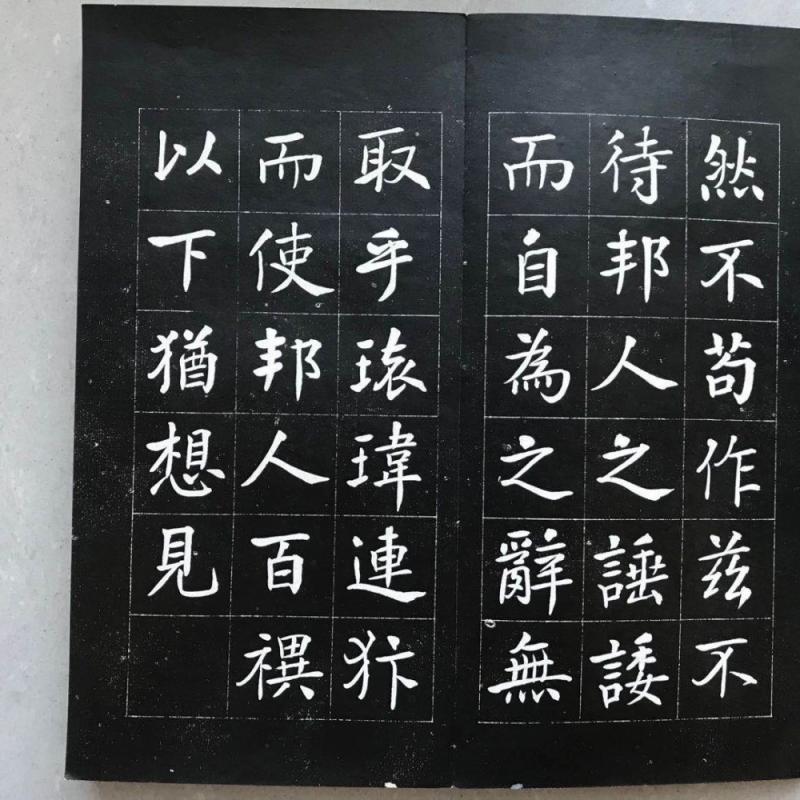 然不苟作兹不
待邦人之諈諉
而自為之辭無
取乎瓌瑋連犿
而使邦人百禩
以下猶想見